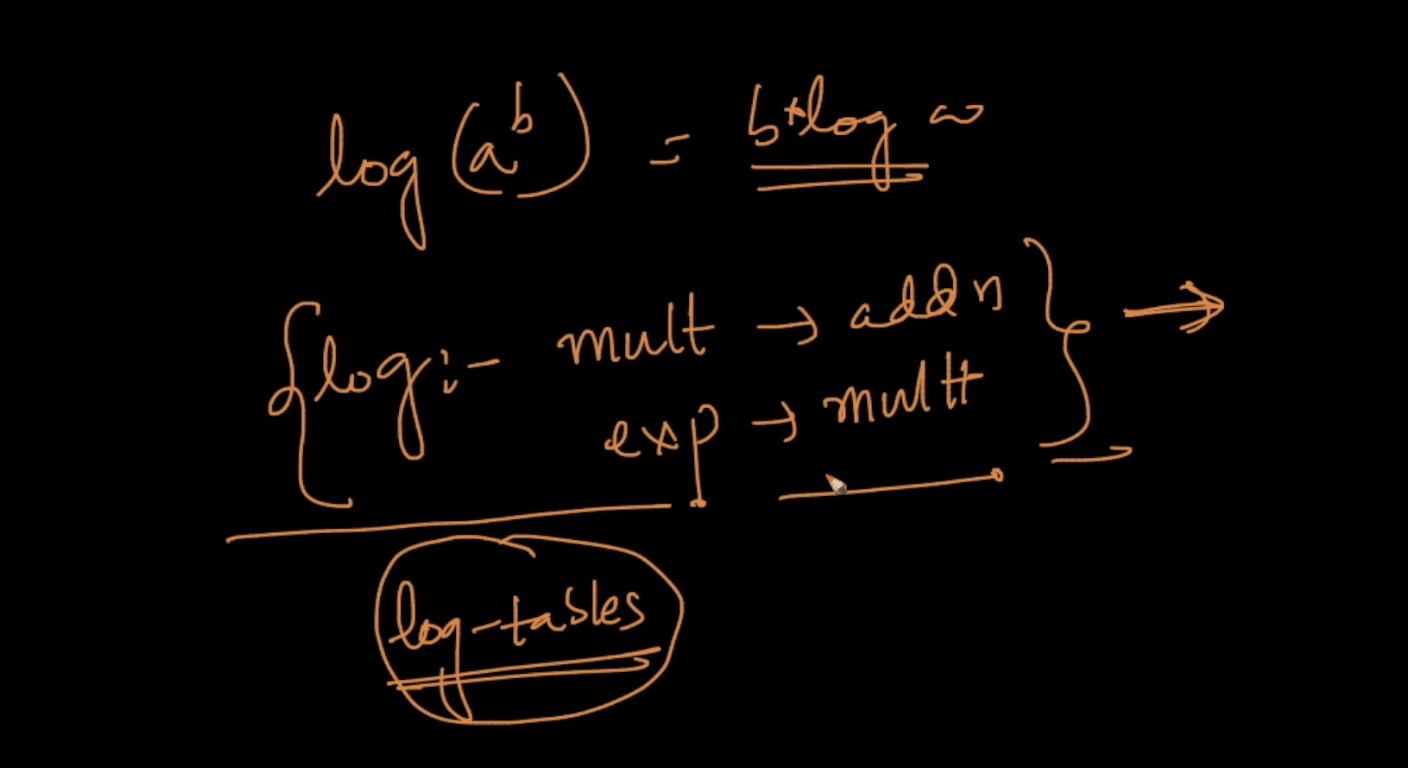 log (a^b) = b*log a
log :- mult → addn
exp → mult
log-tables